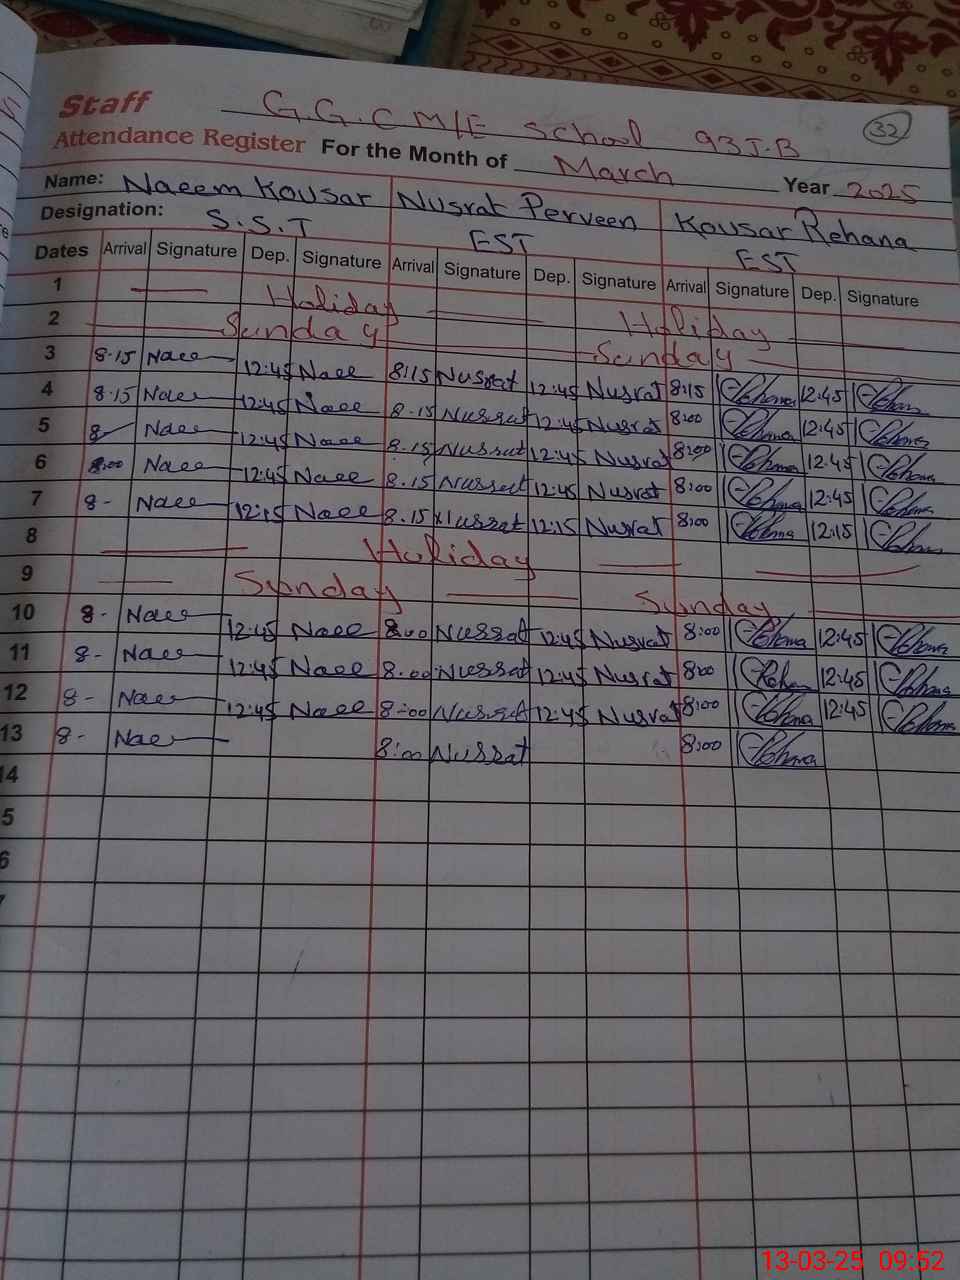 Staff G.G.C M/E School 93J.B 32
Attendance Register For the Month of March Year 2025
Name: Naeem Kousar Nusrat Perveen Kousar Rehana
Designation: S.S.T EST EST
Dates Arrival Signature Dep. Signature Arrival Signature Dep. Signature Arrival Signature Dep. Signature
1 Holiday Holiday
2 Sunday Sunday
3 8-15 Naee 12:45 Naee 8:15 Nusrat 12:45 Nusrat 8:15 Rehana 12:45 Rehana
4 8:15 Naee 12:45 Naee 8.15 Nusrat 12:45 Nusrat 8:00 Rehana 12:45 Rehana
5 8 Naee 12:45 Naee 8.15 Nusrat 12:45 Nusrat 8:00 Rehana 12:45 Rehana
6 8:00 Naee 12:45 Naee 8.15 Nusrat 12:45 Nusrat 8:00 Rehana 12:45 Rehana
7 8- Naee 12:15 Naee 8.15 Nusrat 12:15 Nusrat 8:00 Rehana 12:15 Rehana
8 Holiday
9 Sunday Sunday
10 8- Naee 12:45 Naee 8:00 Nusrat 12:45 Nusrat 8:00 Rehana 12:45 Rehana
11 8- Naee 12:45 Naee 8:00 Nusrat 12:45 Nusrat 8:00 Rehana 12:45 Rehana
12 8- Naee 12:45 Naee 8:00 Nusrat 12:45 Nusrat 8:00 Rehana 12:45 Rehana
13 8- Naee 8:00 Nusrat 8:00 Rehana
14
5
6
13-03-25 09:52